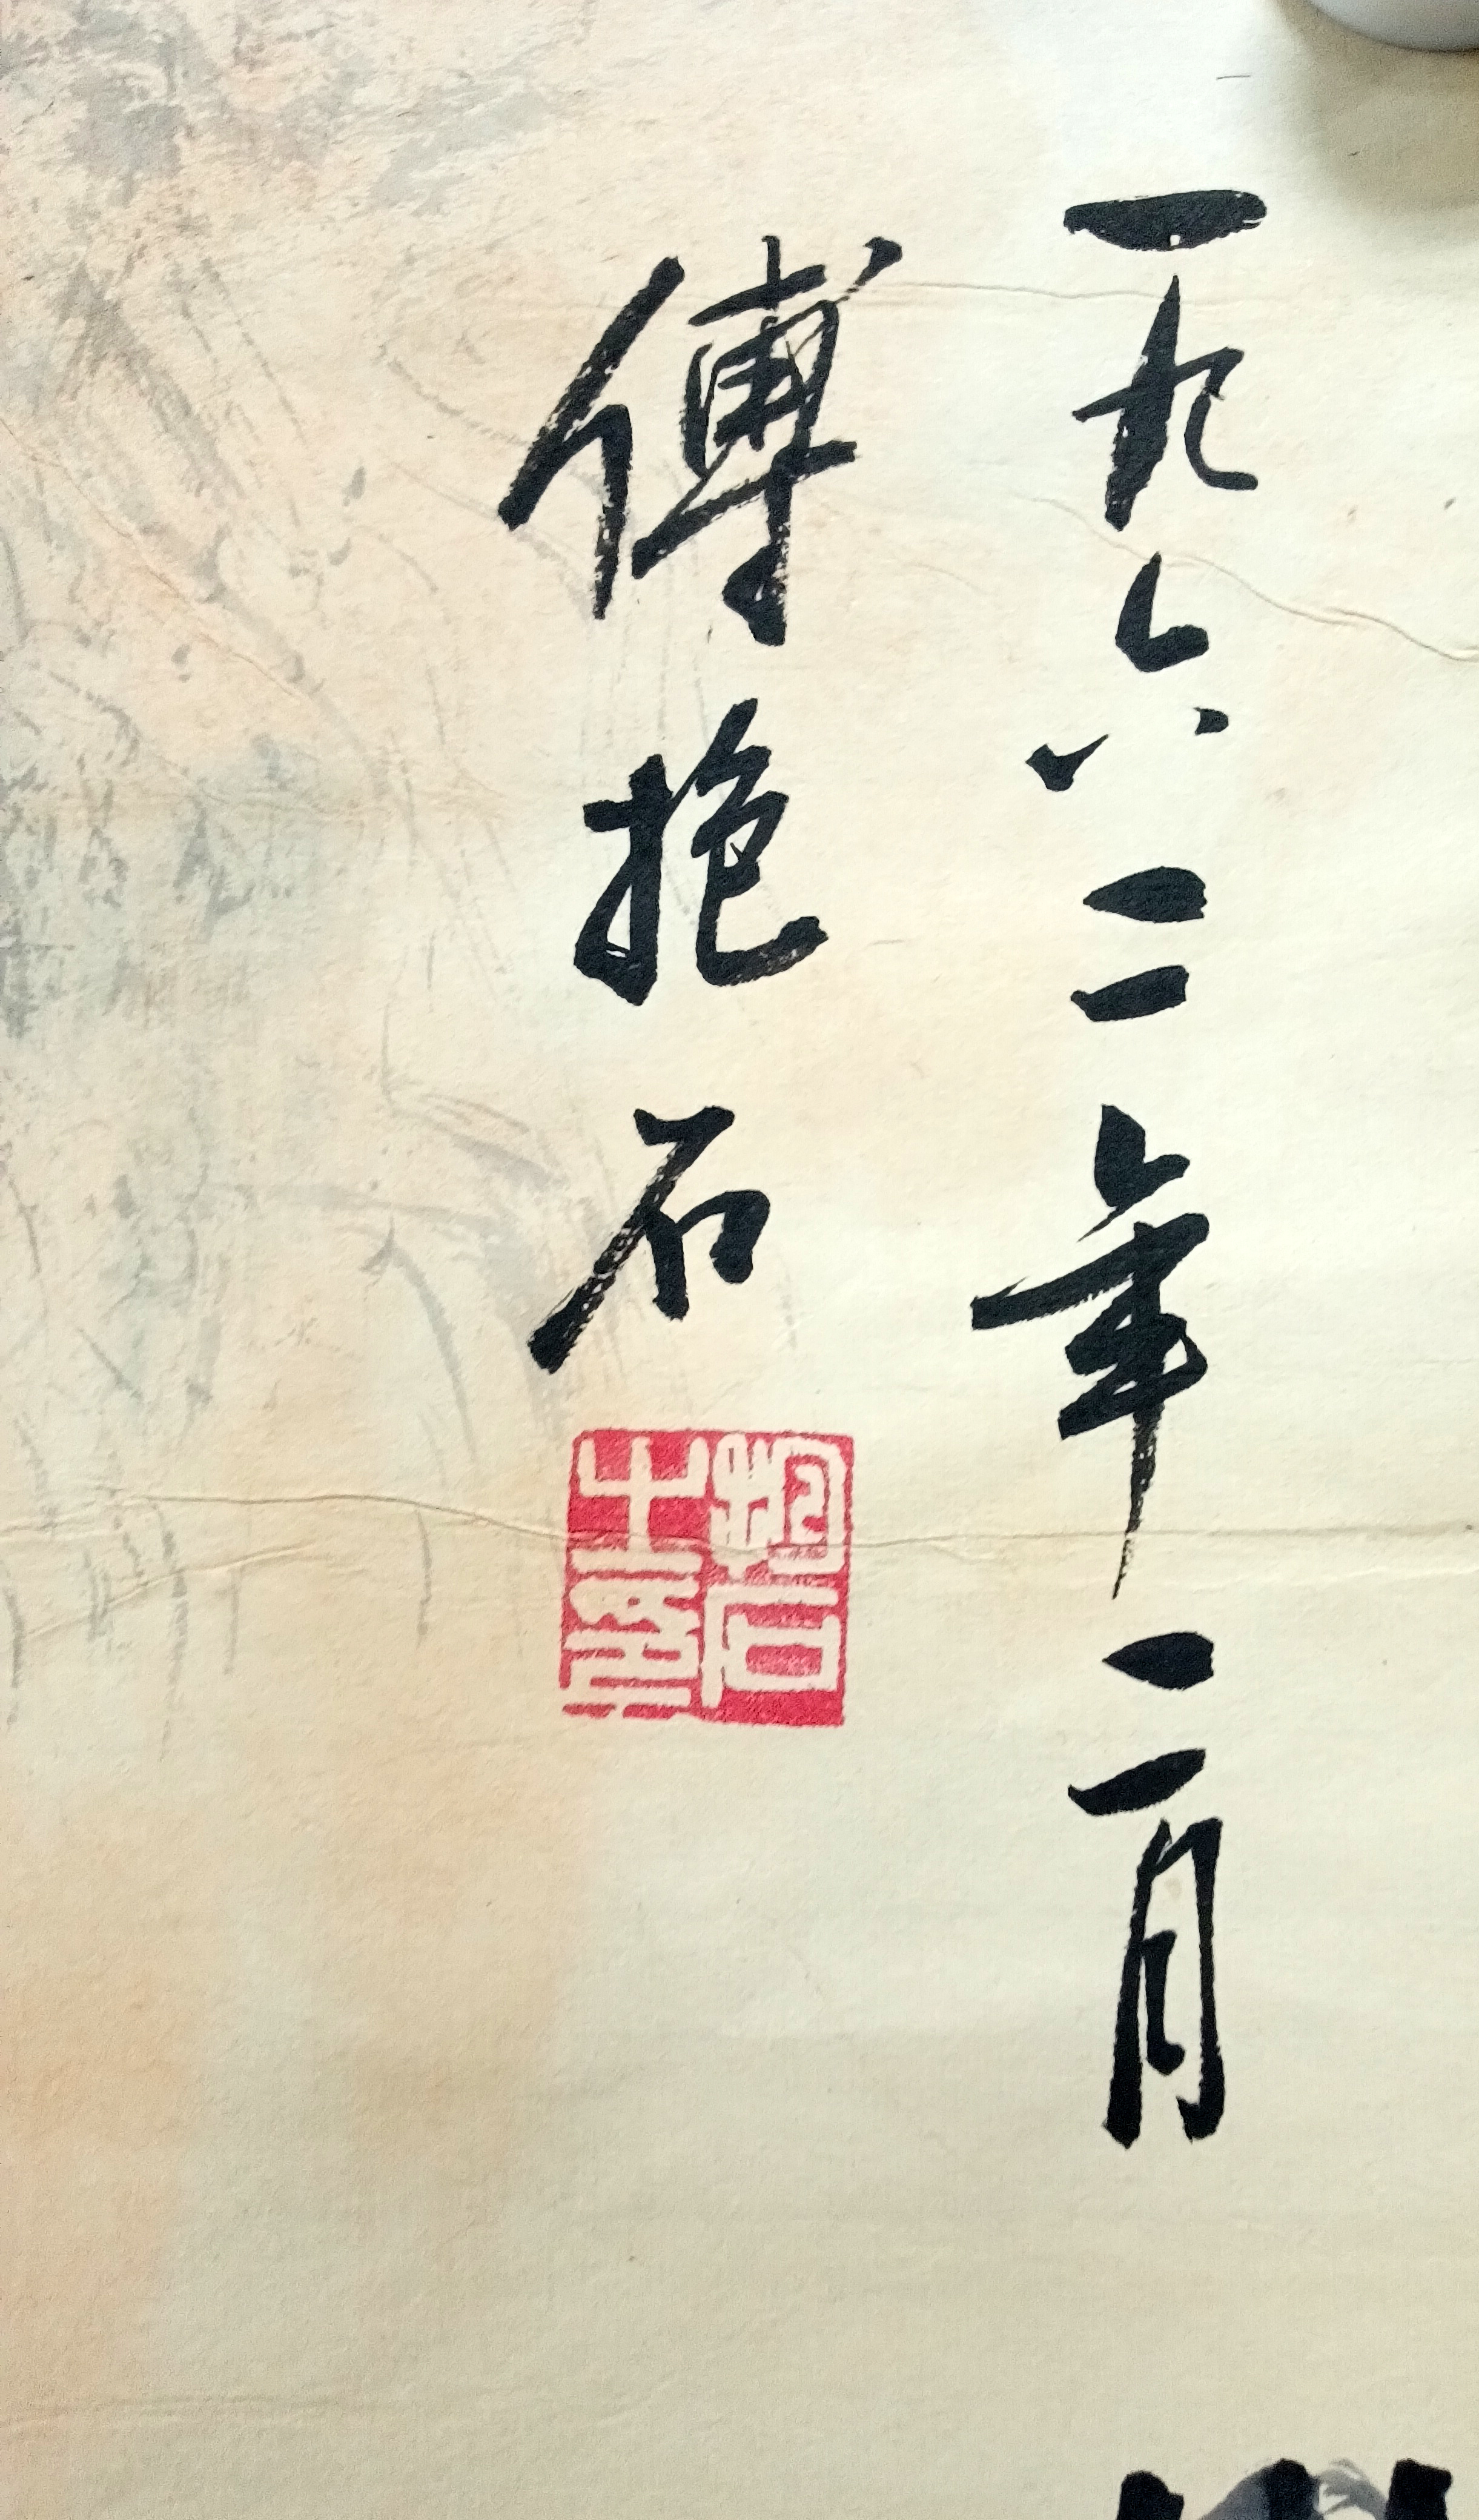 一九六二年二月
傅抱石
抱石
之印